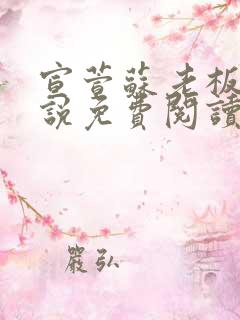 宣萱蘇老板
說免費閱讀
嚴弘